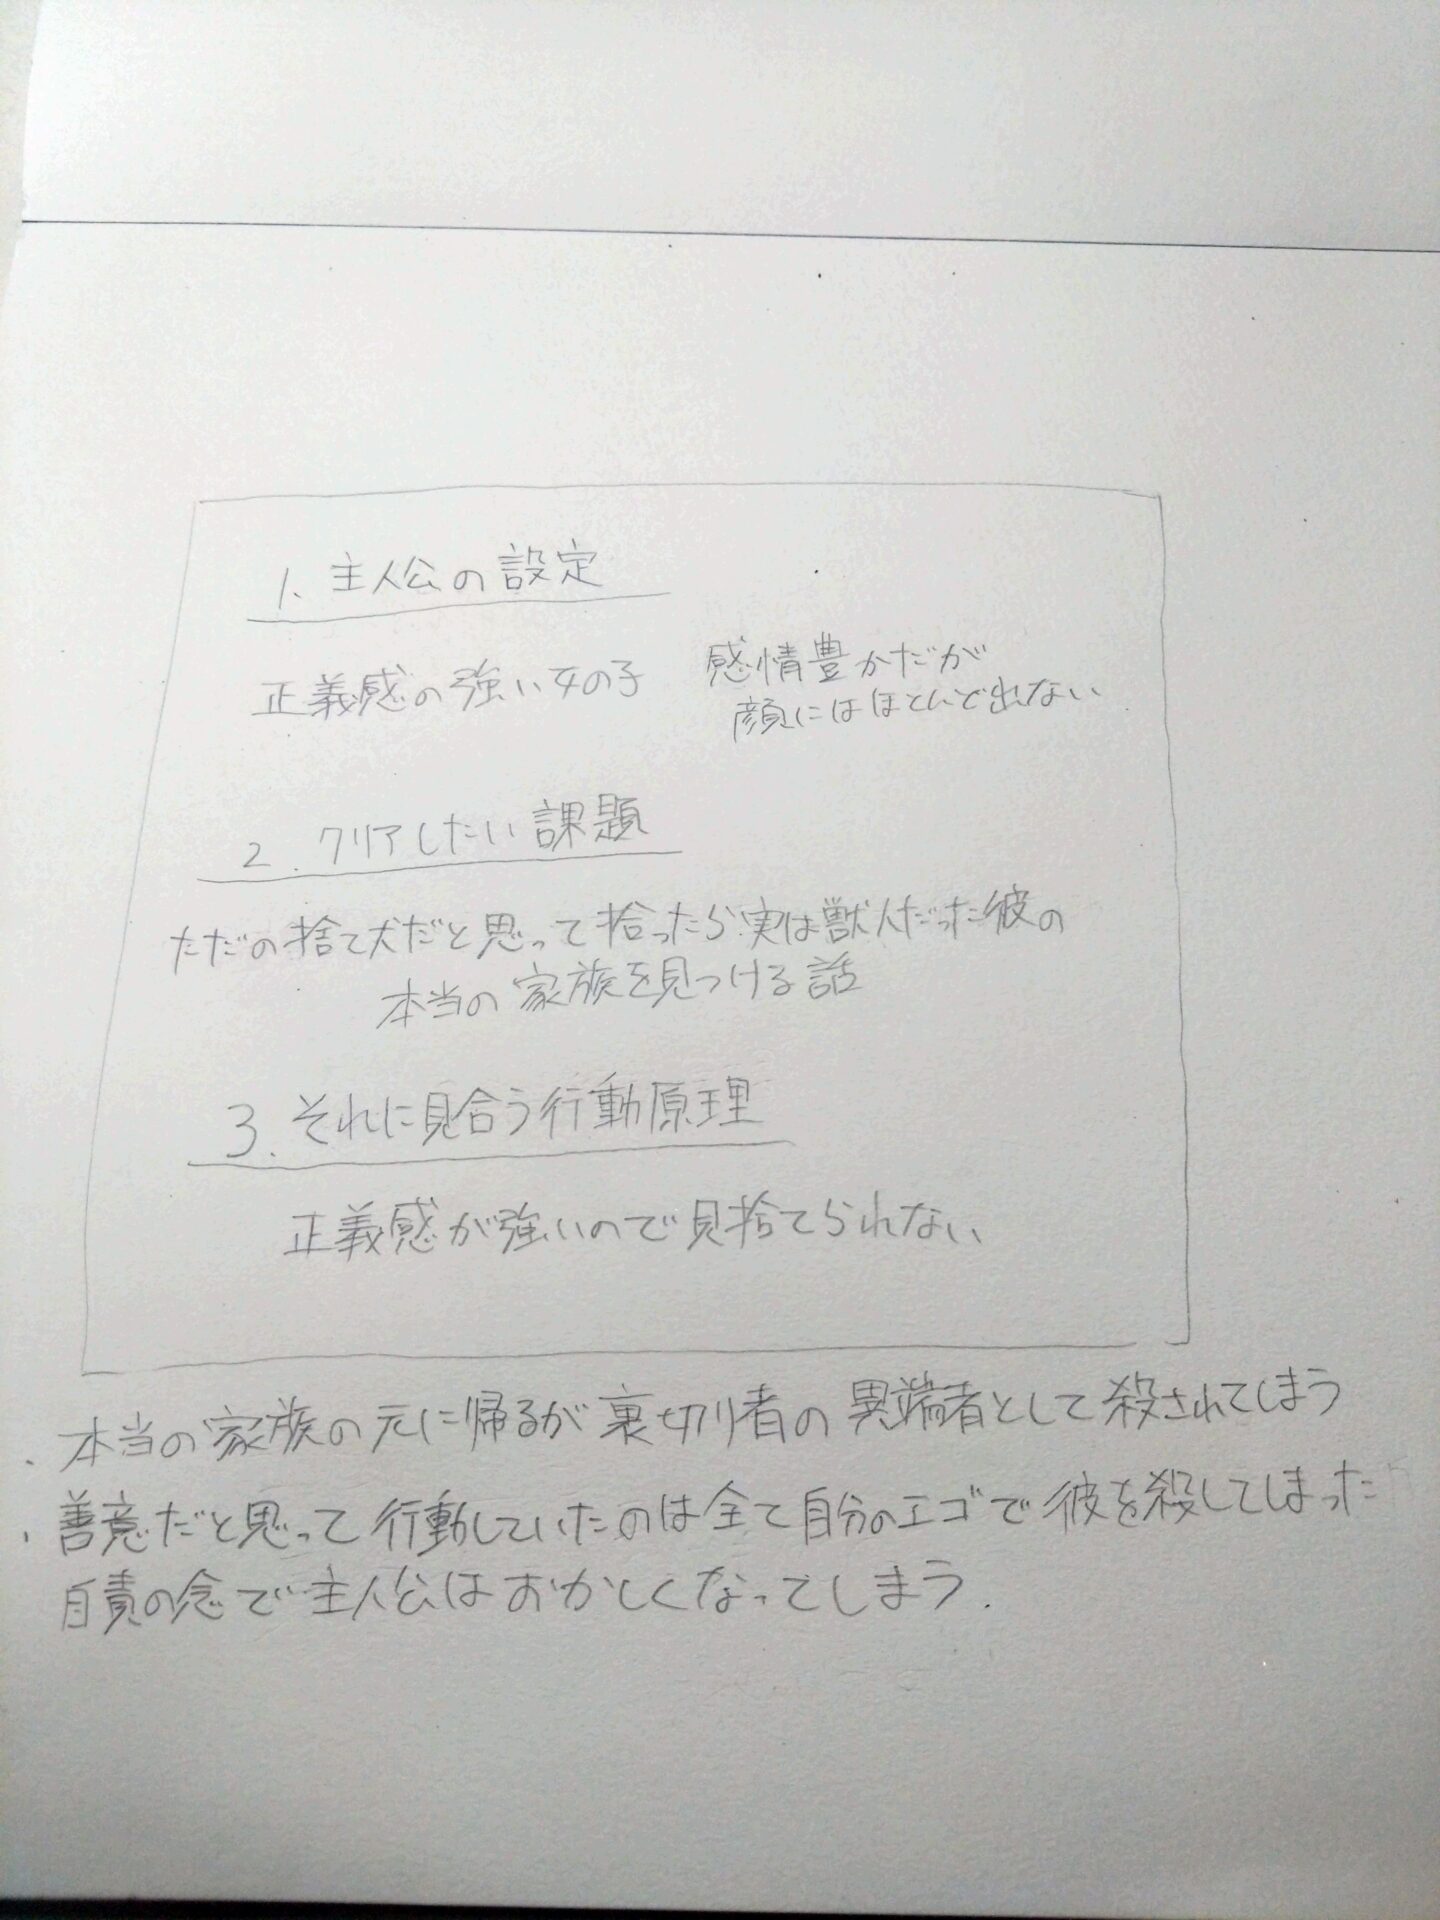 1. 主人公の設定
正義感の強い女の子
感情豊かだが
顔にはほとんど出ない
2. クリアしたい課題
ただの捨て犬だと思って拾ったら実は獣人だった彼の
本当の家族を見つける話
3. それに見合う行動原理
正義感が強いので見捨てられない
・本当の家族の元に帰るが裏切り者の異端者として殺されてしまう
・善意だと思って行動していたのは全て自分のエゴで彼を殺してしまった
自責の念で主人公はおかしくなってしまう.